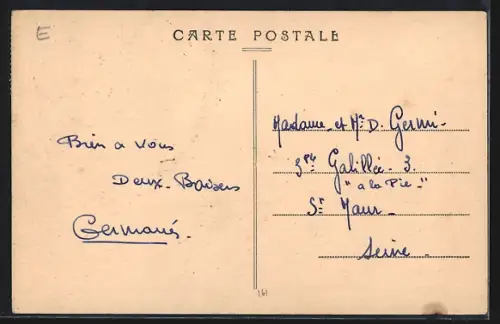 E
CARTE POSTALE
Bien a vous
Deux Baisers
Germanes.
Madame et Mr D. Germi-
Galillée 3.
"a la Pie"
St Maur
Seine.
161